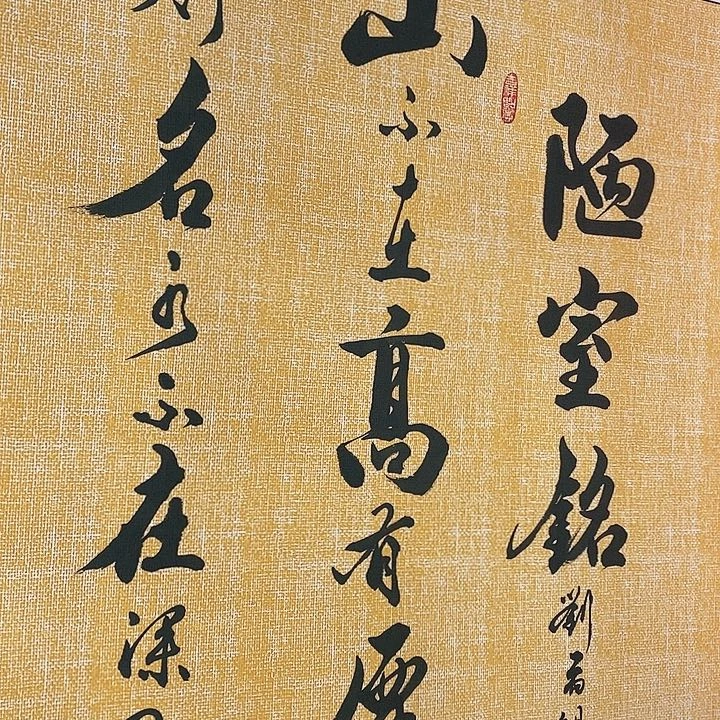 陋室銘 劉禹
山不在高有
名水不在深